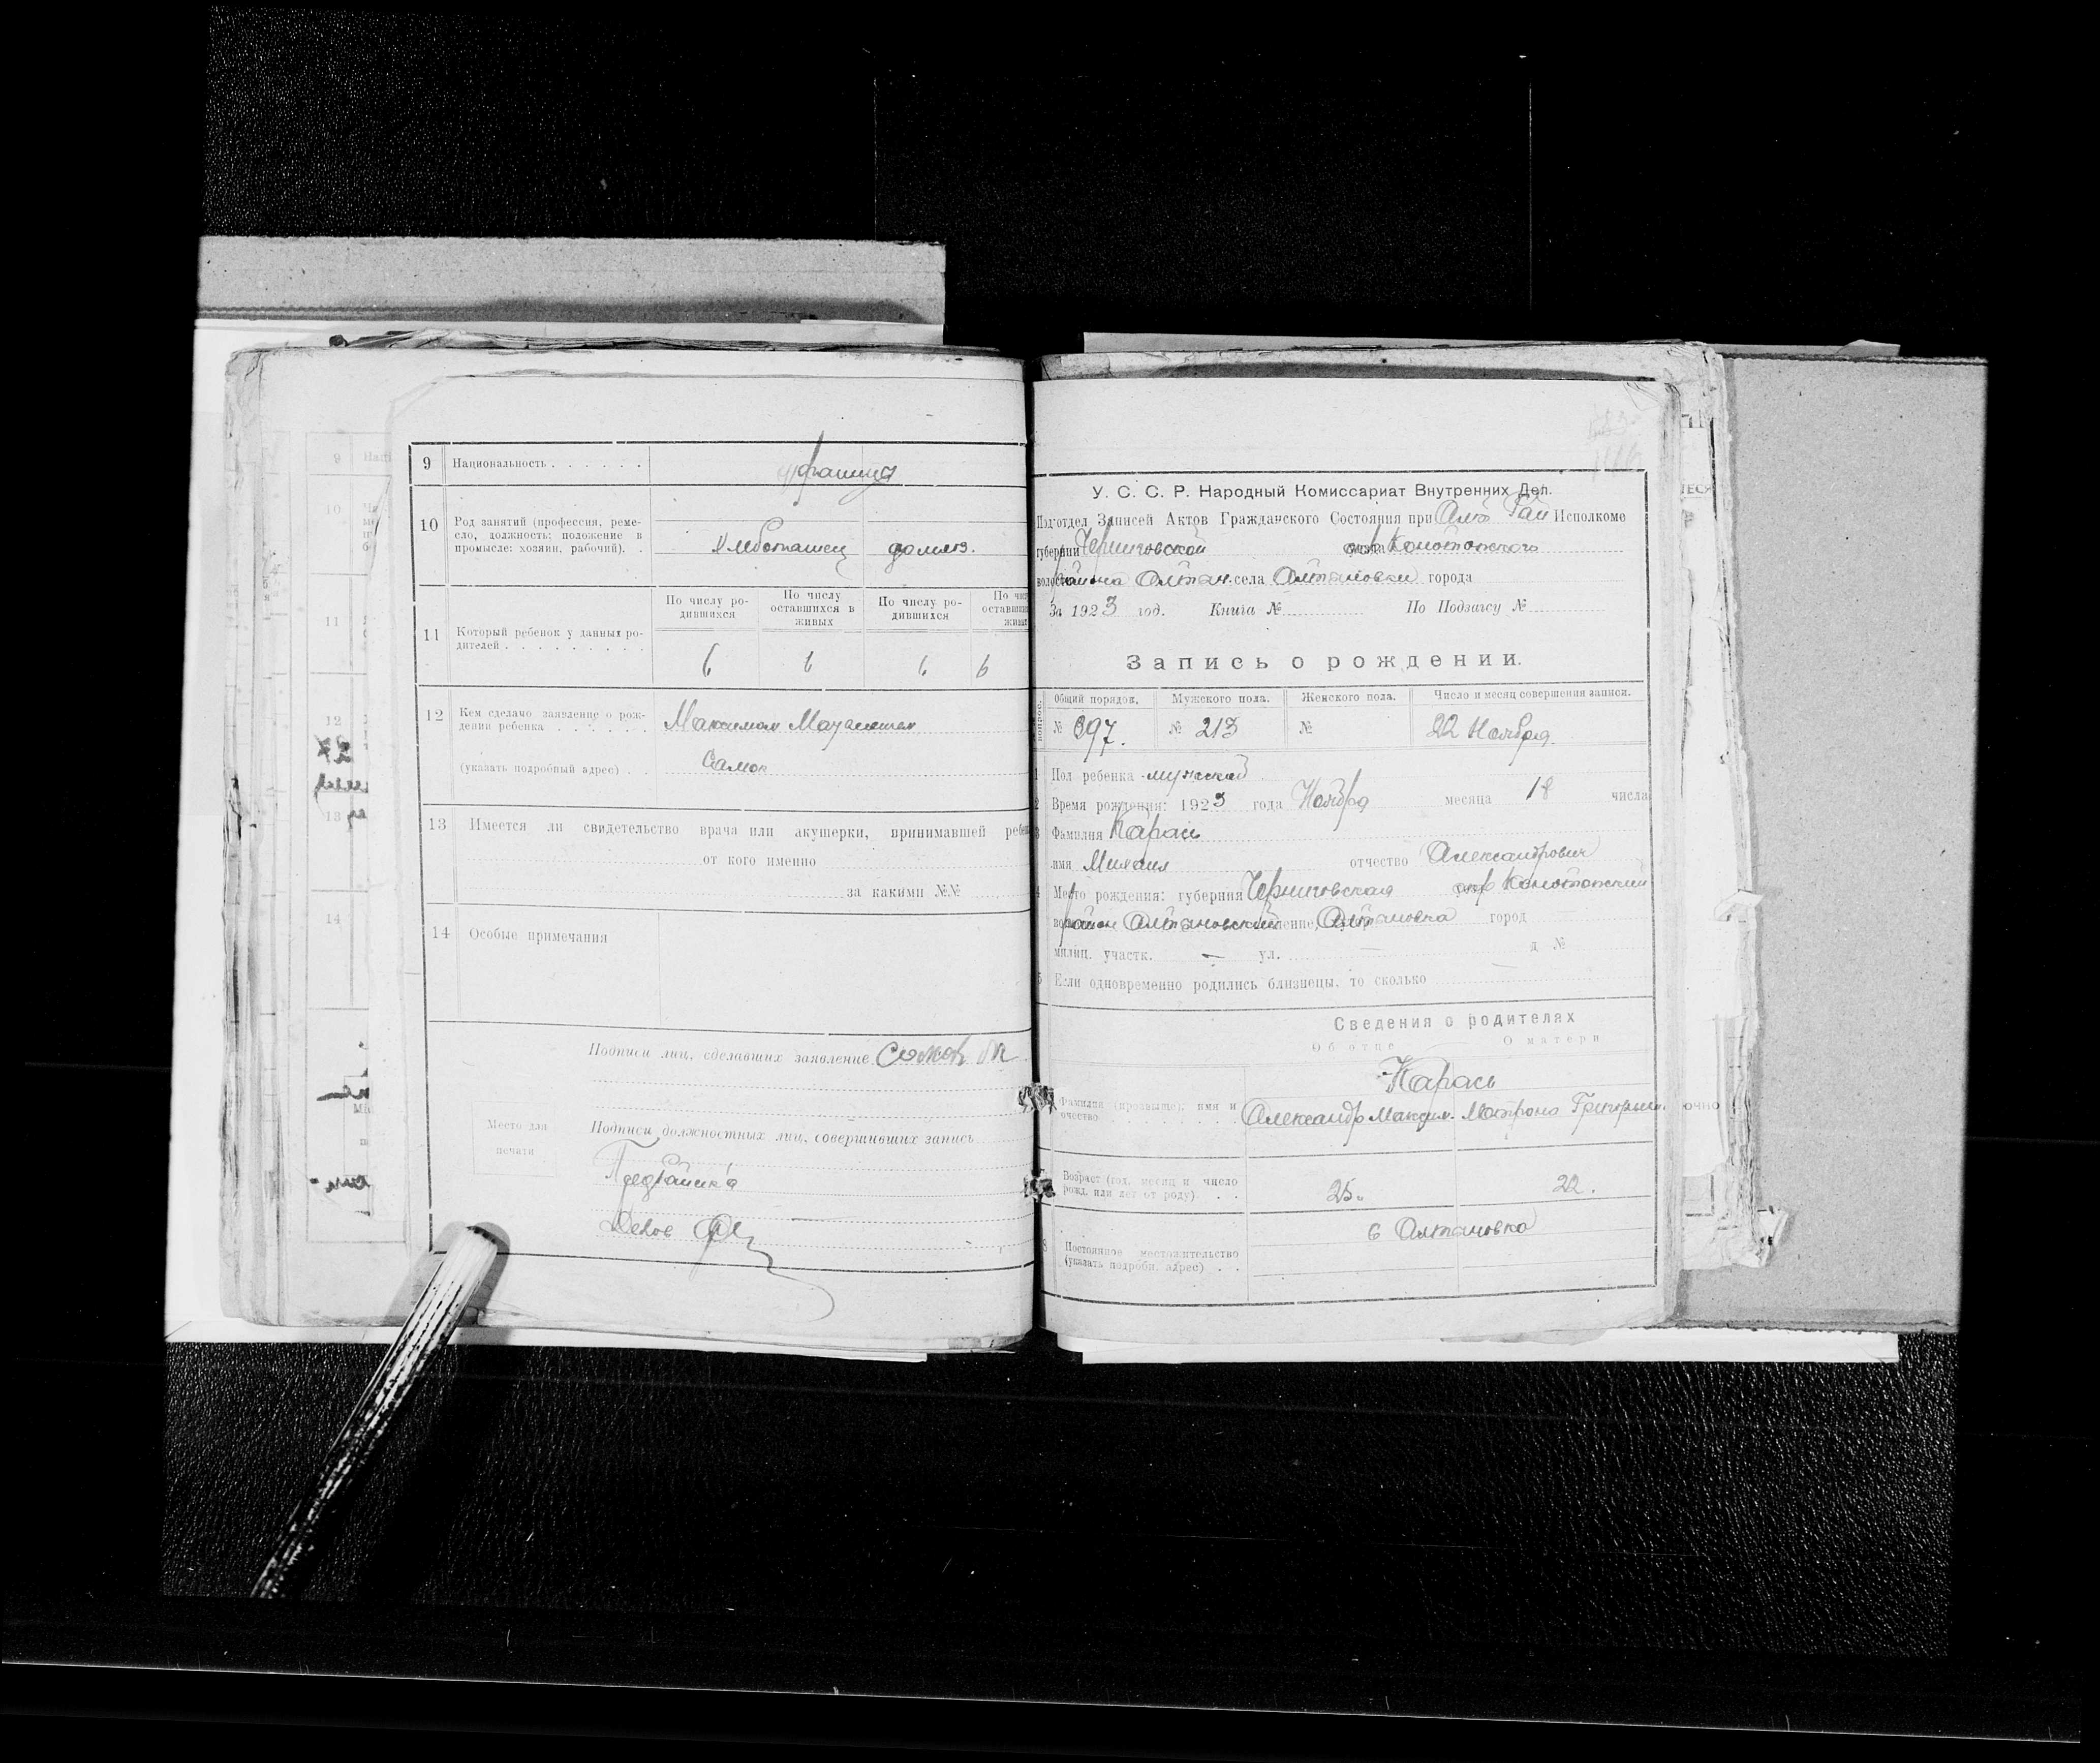 9 Национальность . . . . . .
украинцы
10 Род занятий (профессия, реме-
сло, должность; положение в
промысле: хозяин, рабочий). .
Хлебопашец домхоз.
По числу ро-
дившихся
По числу
оставшихся в
живых
По числу ро-
дившихся
11 Который ребенок у данных ро-
дителей . . . . . . . . .
6 6 6 6
12 Кем сделано заявление о рож-
дении ребенка . . . . . .
Максимом
(указать подробный адрес) . .
13 Имеется ли свидетельство врача или акушерки, принимавшей
от кого именно
за какими №№
14 Особые примечания
Подписи лиц, сделавших заявление
Место для
печати
Подписи должностных лиц, совершивших запись
ПредРайика
Делов
У. С. С. Р. Народный Комиссариат Внутренних Дел.
Подотдел Записей Актов Гражданского Состояния при Алт Рай Исполкоме
губернии Черниговской окр Конотопского
района Алтын. села Алтыновки города
За 1923 год. Книга № По Подзагсу №
Запись о рождении.
Общий порядок. Мужского пола. Женского пола. Число и месяц совершения записи.
№ 397. № 213 № 22 Ноября
1 Пол ребенка мужской
2 Время рождения: 1923 года Ноября месяца 18 числа
3 Фамилия Карась
имя Михаил отчество Александрович
4 Место рождения: губерния Черниговская окр Конотопский
район Алтыновский селение Алтыновка город
милиц. участк. — ул. — д №
5 Если одновременно родились близнецы, то сколько —
Сведения о родителях
Об отце О матери
Карась
Фамилия (прозвище), имя и
отчество . . . . . . . .
Александр Максим. Матрона Григорьев.
Возраст (год, месяц и число
рожд. или лет от роду). . .
25. 22.
8 Постоянное местожительство
(указать подробн. адрес) . .
с Алтыновка